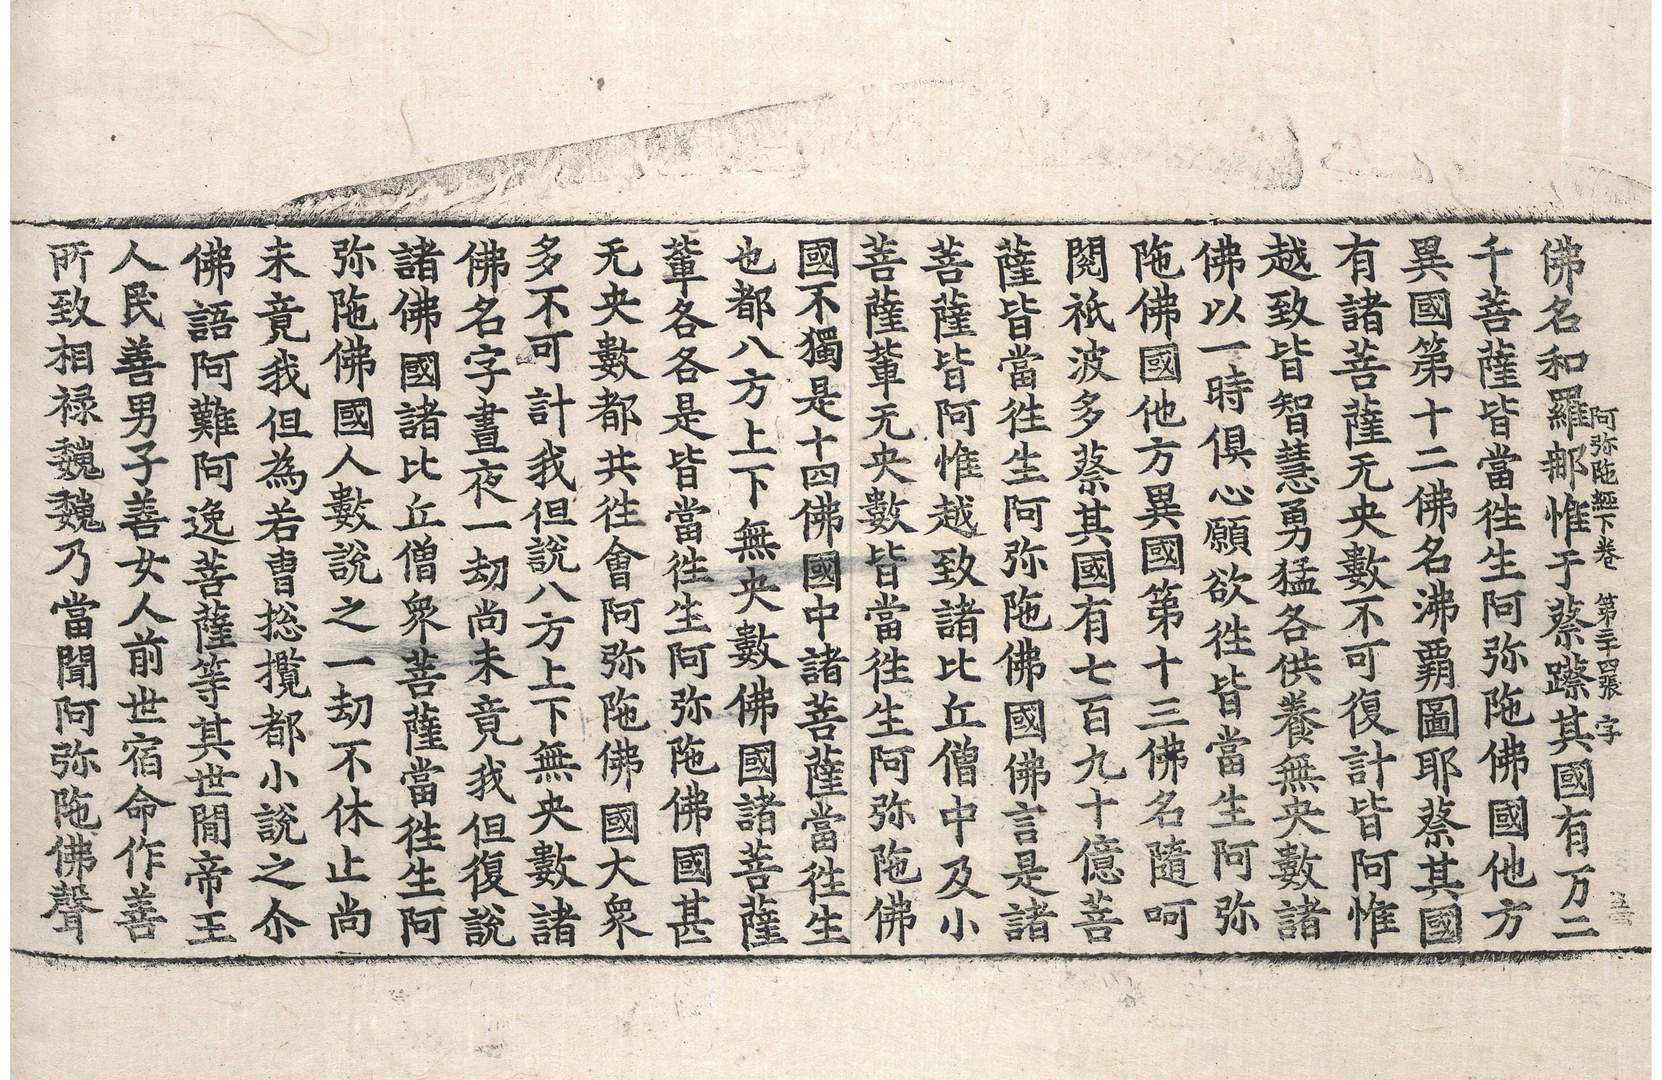 阿弥陁經下卷 第三十四張 字
佛名和羅那惟于蔡蹹其國有万二
千菩薩皆當徃生阿弥陁佛國他方
異國第十二佛名沸覇圖耶蔡其國
有諸菩薩无央數不可復計皆阿惟
越致皆智慧勇猛各供養無央數諸
佛以一時俱心願欲徃皆當生阿弥
陁佛國他方異國第十三佛名隨呵
閱祇波多蔡其國有七百九十億菩
薩皆當徃生阿弥陁佛國佛言是諸
菩薩皆阿惟越致諸比丘僧中及小
菩薩軰无央數皆當徃生阿弥陁佛
國不獨是十四佛國中諸菩薩當徃生
也都八方上下無央數佛國諸菩薩
軰各各是皆當徃生阿弥陁佛國甚
无央數都共徃會阿弥陁佛國大衆
多不可計我但說八方上下無央數諸
佛名字晝夜一劫尚未竟我但復說
諸佛國諸比丘僧衆菩薩當徃生阿
弥陁佛國人數說之一劫不休止尚
未竟我但為若曹揔攬都小說之尒
佛語阿難阿逸菩薩等其世閒帝王
人民善男子善女人前世宿命作善
所致相禄巍巍乃當聞阿弥陁佛聲